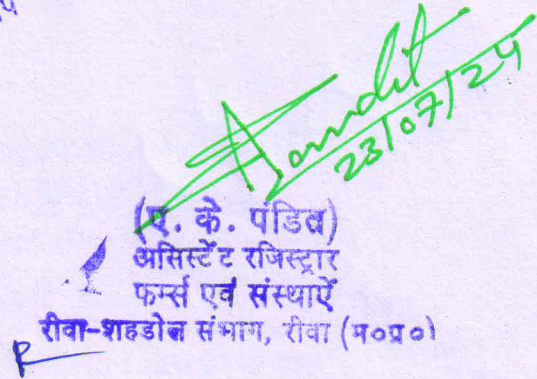 Pandit
23/07/24
(ए. के. पंडित)
असिस्टेंट रजिस्ट्रार
फर्म्स एवं संस्थाऐं
रीवा-शहडोल संभाग, रीवा (म०प्र०)